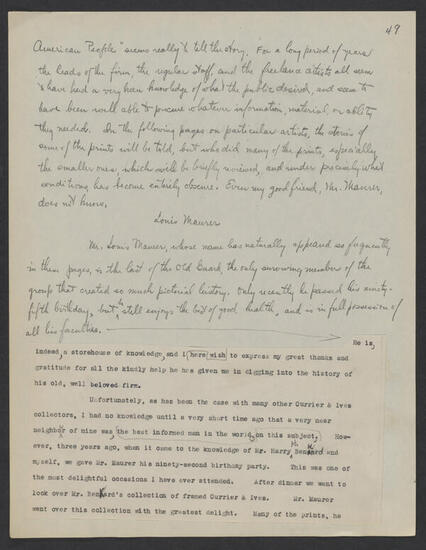 49
American People" seems really to tell the story. For a long period of years
the heads of the firm, the regular staff, and the freelance artists all seem
to have had a very keen knowledge of what the public desired, and seem to
have been well able to procure whatever information, material or ability
they needed. In the following pages on particular artists, the stories of
some of the prints will be told, but who did many of the prints, especially
the smaller ones, which will be briefly reviewed, and under precisely what
conditions, has become entirely obscure. Even my good friend, Mr. Maurer,
does not know.
Louis Maurer
Mr. Louis Maurer, whose name has naturally appeared so frequently
in these pages, is the last of the Old Guard, the only surviving member of the
group that created so much pictorial history. Only recently he passed his ninety-
fifth birthday, but he still enjoys the best of good health, and is in full possession of
all his faculties.
He is,
indeed, a storehouse of knowledge, and I here wish to express my great thanks and
gratitude for all the kindly help he has given me in digging into the history of
his old, well beloved firm.
Unfortunately, as has been the case with many other Currier & Ives
collectors, I had no knowledge until a very short time ago that a very near
neighbor of mine was the best informed man in the world on this subject. How-
ever, three years ago, when it came to the knowledge of Mr. Harry and
myself, we gave Mr. Maurer his ninety-second birthday party. This was one of
the most delightful occasions I have ever attended. After dinner we went to
look over Mr. collection of framed Currier & Ives. Mr. Maurer
went over this collection with the greatest delight. Many of the prints, he